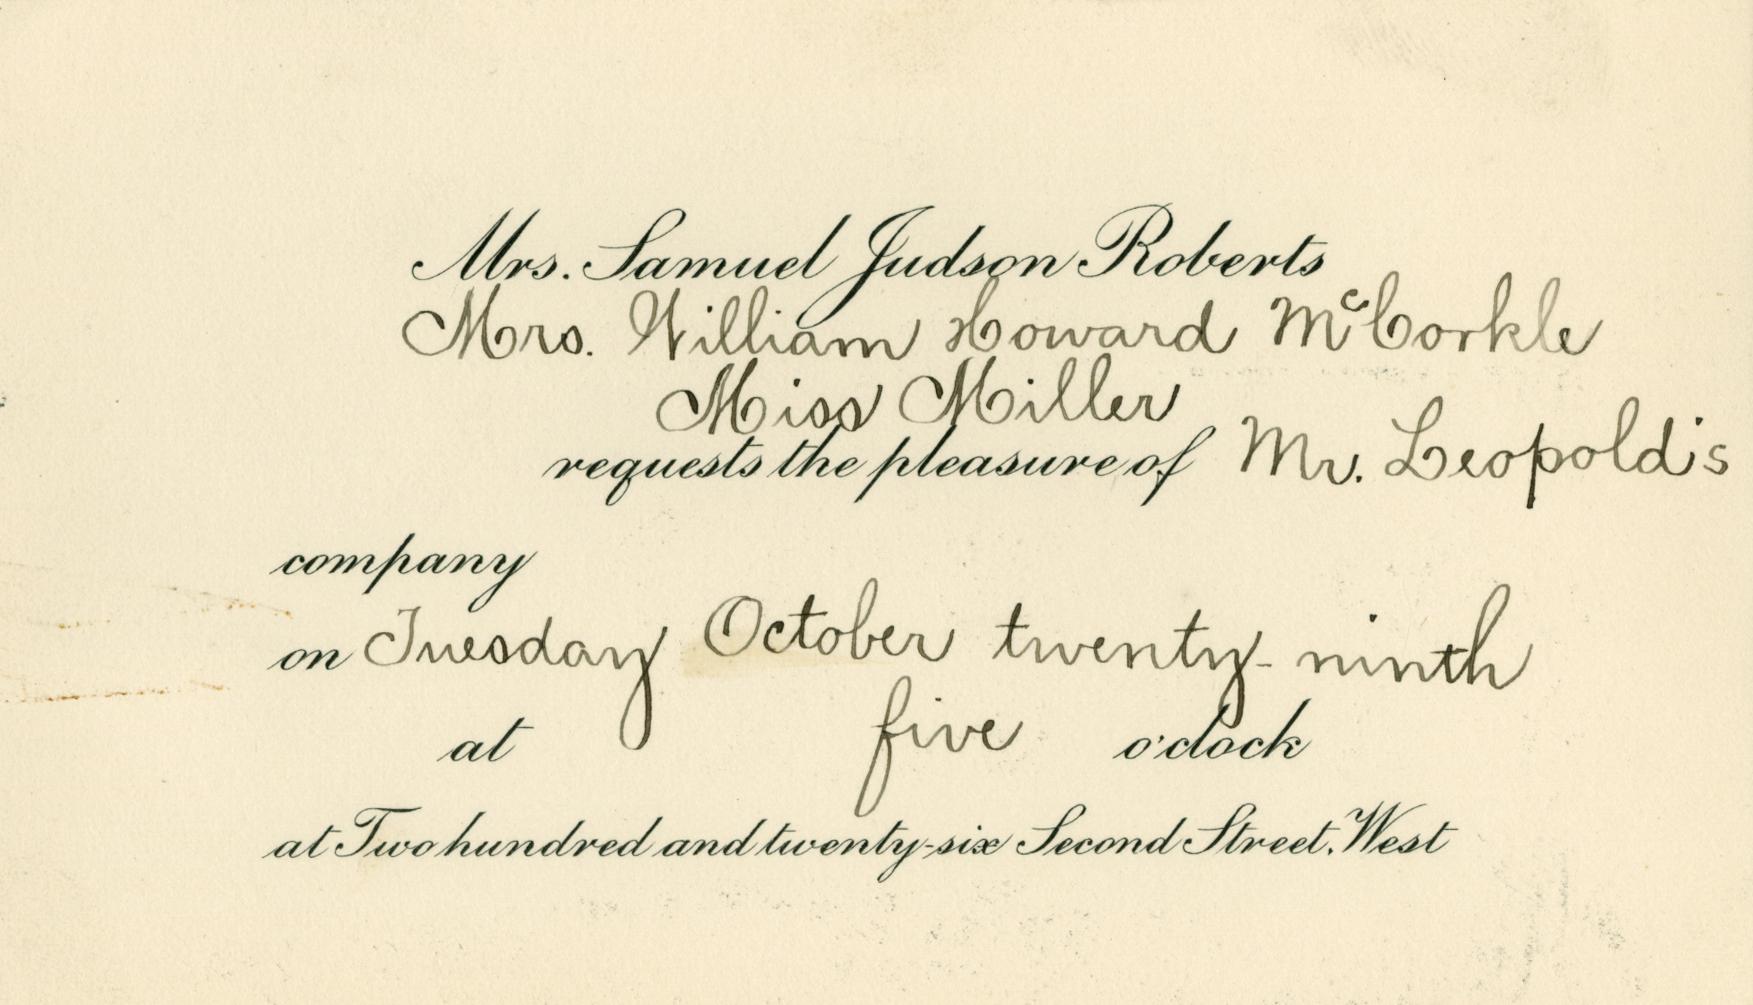 Mrs. Samuel Judson Roberts
Mrs. William Howard McCorkle
Miss Miller
requests the pleasure of Mr. Leopold's
company
on Tuesday October twenty-ninth
at five o'clock
at Two hundred and twenty-six Second Street, West